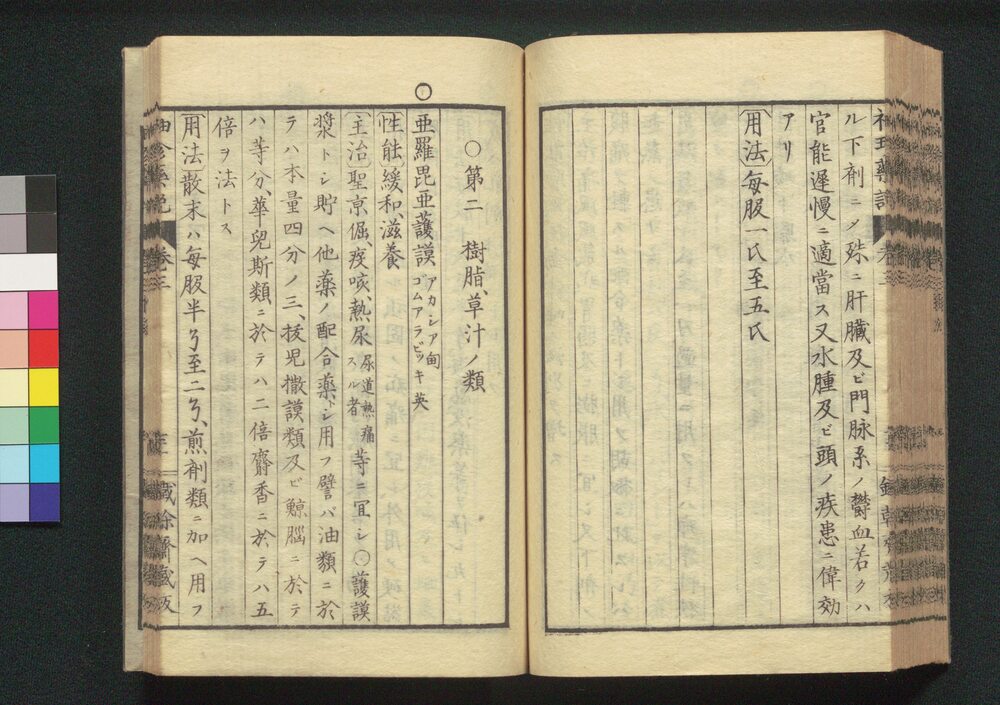 ル下剤ニメ殊ニ肝臓及ビ門脉系ノ鬱血若クハ
官能遅慢ニ適當ス又水腫及ビ頭ノ疾患ニ偉効
アリ
用法 毎服一氏至五氏
○第二 樹脂、草汁ノ類
○
亜羅毘亜護謨 アカシア甸 ゴムアラビッキ英
性能 緩和、滋養
主治 聖京倔、痎咳、熱、尿 尿道熱痛スル者 等ニ冝シ○護謨
漿トシ貯ヘ他薬ノ配合薬トシ用フ譬バ油類ニ於
テハ本量四分ノ三、拔児撒謨類及ビ鯨腦ニ於テ
ハ等分、華児斯類ニ於テハ二倍麝香ニ於テハ五
倍ヲ法トス
用法 散末ハ毎服半ゟ至二ゟ、煎剤類ニ加ヘ用フ